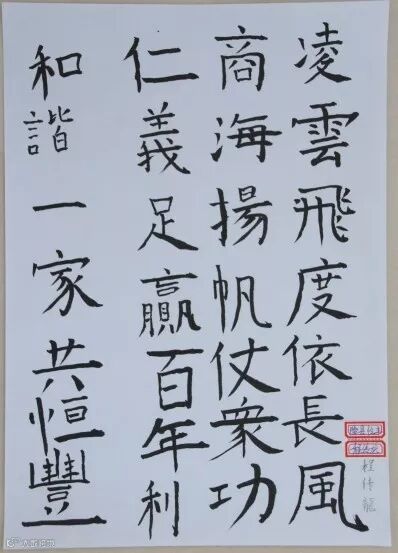 凌雲飛度依長風
商海揚帆仗衆功
仁義足贏百年利
和諧一家共恒豐
程傳龍